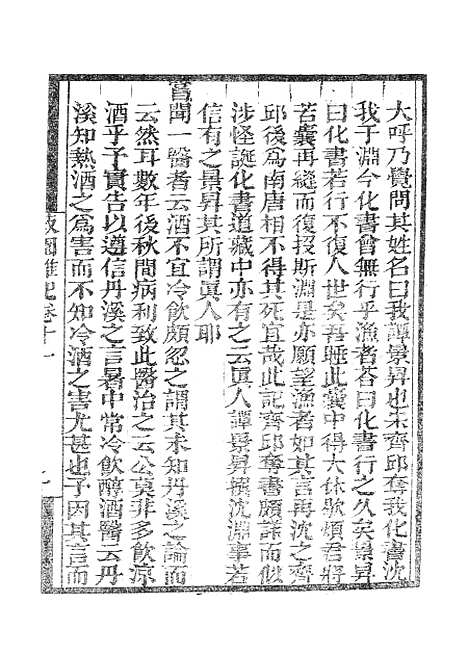 大呼乃覺問其姓名曰我譚景昇也宋齊邱奪我化書沈
我于淵今化書曾無行乎漁者荅曰化書行之久矣景昇
曰化書若行不復人世矣吾睡此囊中得大休歇煩君將
若囊再縫而復投斯淵是亦願望漁者如其言再沈之齊
邱後爲南唐相不得其死宜哉此記齊邱奪書頗詳而似
涉怪誕化書道藏中亦有之云眞人譚景昇撰沈淵事若
信有之景昇其所謂眞人耶
嘗聞一醫者云酒不宜冷飲頗忽之謂其未知丹溪之論而
云然耳數年後秋間病利致此醫治之云公莫非多飲涼
酒乎予實告以遵信丹溪之言暑中常冷飲醇酒醫云丹
溪知熱酒之爲害而不知冷酒之害尤甚也予因其言而
菽園雜記卷十一